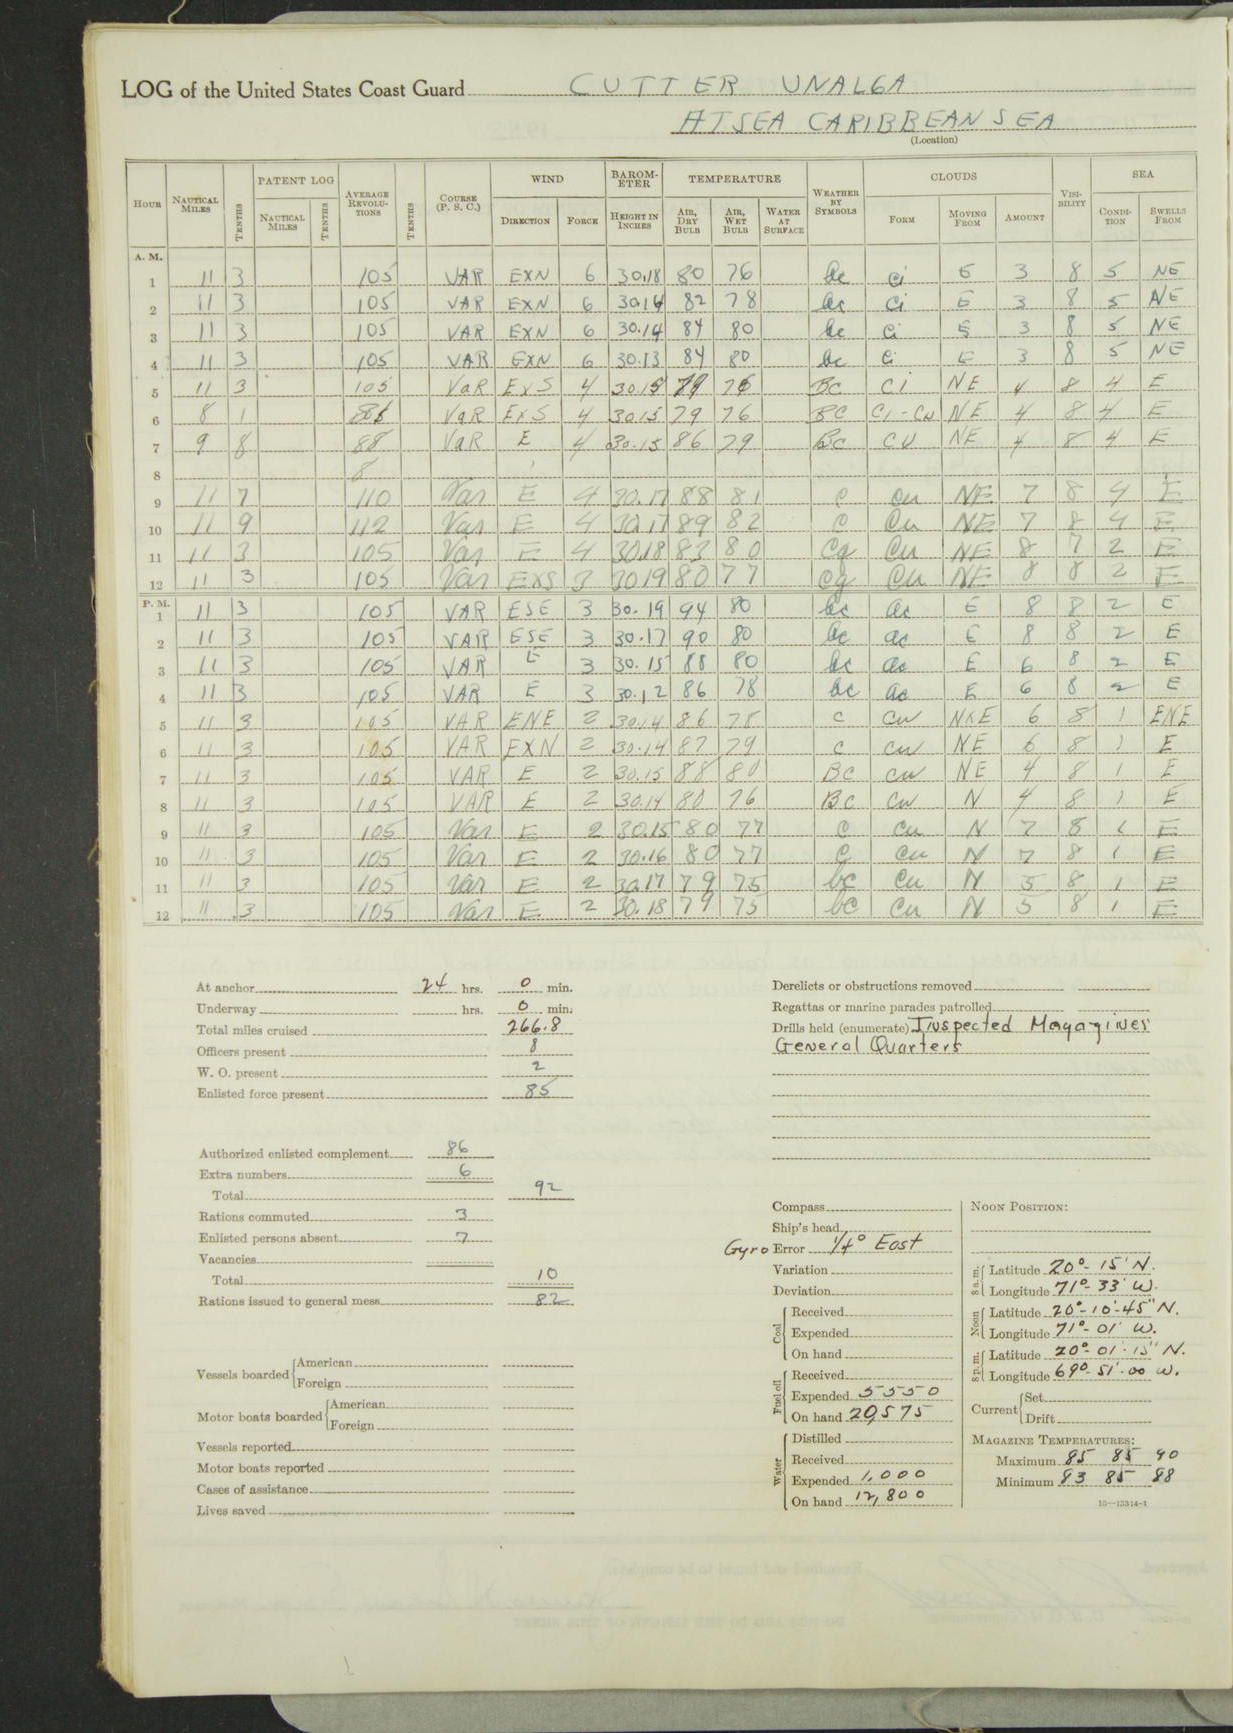 LOG of the United States Coast Guard CUTTER UNALGA
AT SEA CARIBBEAN SEA
(Location)
HOUR NAUTICAL MILES TENTHS PATENT LOG NAUTICAL MILES TENTHS AVERAGE REVOLUTIONS TENTHS COURSE (P. S. C.) WIND DIRECTION FORCE BAROMETER HEIGHT IN INCHES TEMPERATURE AIR, DRY BULB AIR, WET BULB WATER AT SURFACE WEATHER BY SYMBOLS CLOUDS FORM MOVING FROM AMOUNT VISIBILITY SEA CONDITION SWELLS FROM
A. M.
1 11 3 105 VAR EXN 6 30.18 80 76 bc ci E 3 8 5 NE
2 11 3 105 VAR EXN 6 30.14 82 78 bc ci E 3 8 5 NE
3 11 3 105 VAR EXN 6 30.14 84 80 bc ci E 3 8 5 NE
4 11 3 105 VAR EXN 6 30.13 84 80 bc ci E 3 8 5 NE
5 11 3 105 VaR ExS 4 30.15 79 76 BC CI NE 4 8 4 E
6 8 1 VaR ExS 4 30.15 79 76 BC CI-CU NE 4 8 4 E
7 9 8 88 VaR E 4 30.15 86 79 BC CU NE 4 8 4 E
8 8
9 11 7 110 Var E 4 30.17 88 81 c cu NE 7 8 4 E
10 11 9 112 Var E 4 30.17 89 82 c Cu NE 7 8 4 E
11 11 3 105 Var E 4 30.18 83 80 cq Cu NE 8 7 2 E
12 11 3 105 Var EXS 3 30.19 80 77 cq Cu NE 8 8 2 E
P. M.
1 11 3 105 VAR ESE 3 30.19 94 80 bc ac E 8 8 2 E
2 11 3 105 VAR ESE 3 30.17 90 80 bc ac E 8 8 2 E
3 11 3 105 VAR E 3 30.15 88 80 bc ac E 6 8 2 E
4 11 3 105 VAR E 3 30.12 86 78 bc ac E 6 8 2 E
5 11 3 105 VAR ENE 2 30.14 86 78 c cu NXE 6 8 1 ENE
6 11 3 105 VAR EXN 2 30.14 87 79 c cu NE 6 8 1 E
7 11 3 105 VAR E 2 30.15 88 80 BC cu NE 4 8 1 E
8 11 3 105 VAR E 2 30.14 80 76 BC cu N 4 8 1 E
9 11 3 105 Var E 2 30.15 80 77 c cu N 7 8 1 E
10 11 3 105 Var E 2 30.16 80 77 c cu N 7 8 1 E
11 11 3 105 Var E 2 30.17 79 75 bc cu N 5 8 1 E
12 11 3 105 Var E 2 30.18 79 75 bc cu N 5 8 1 E
At anchor 24 hrs. 0 min.
Underway hrs. 0 min.
Total miles cruised 266.8
Officers present 8
W. O. present 2
Enlisted force present 85
Authorized enlisted complement 86
Extra numbers 6
Total 92
Rations commuted 3
Enlisted persons absent 7
Vacancies
Total 10
Rations issued to general mess 82
Vessels boarded American
Foreign
Motor boats boarded American
Foreign
Vessels reported
Motor boats reported
Cases of assistance
Lives saved
Derelicts or obstructions removed
Regattas or marine parades patrolled
Drills held (enumerate) Inspected Magazines
General Quarters
Compass
Ship's head
Gyro Error 1/4° East
Variation
Deviation
Coal Received
Expended
On hand
Fuel oil Received
Expended 5550
On hand 20,575
Water Distilled
Received
Expended 1,000
On hand 12,800
NOON POSITION:
8 a.m. Latitude 20°-15' N.
Longitude 71°-33' W.
Noon Latitude 20°-10'-45" N.
Longitude 71°-01' W.
8 p.m. Latitude 20°-01'-15" N.
Longitude 69°-51'-00 W.
Current Set
Drift
MAGAZINE TEMPERATURES:
Maximum 85 85 90
Minimum 83 85 88
16—13314-1